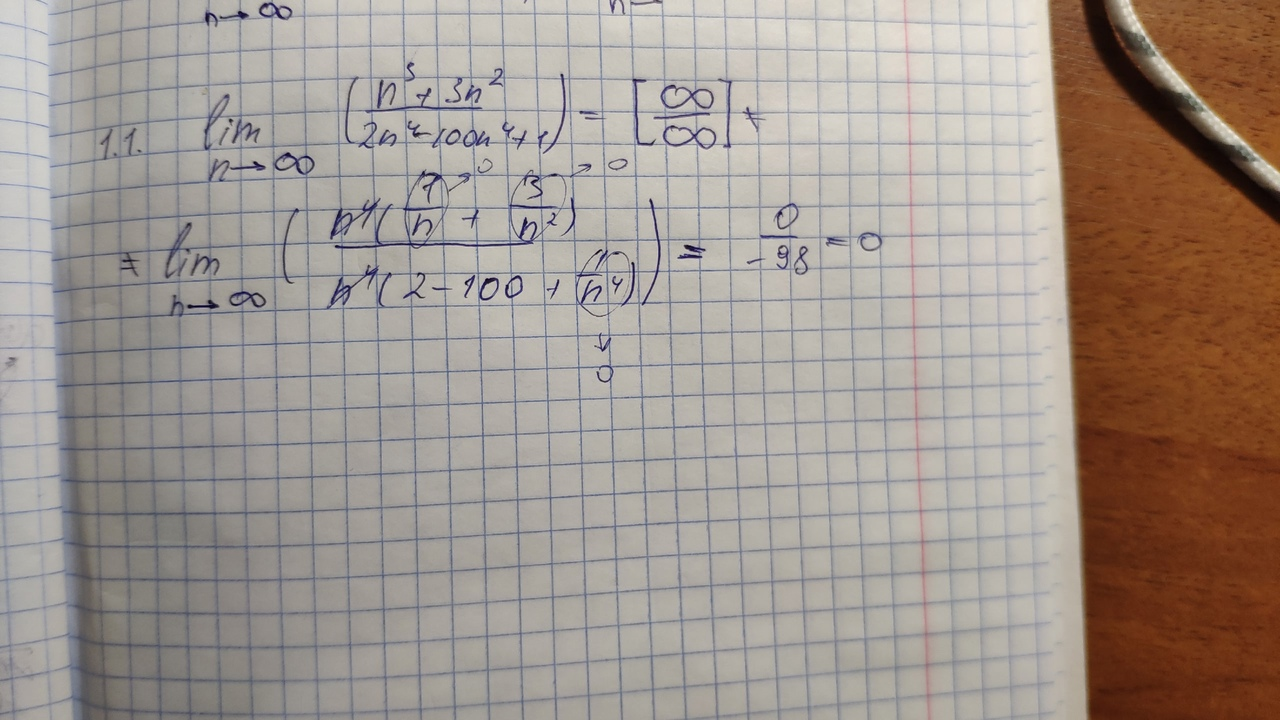 n→∞ n→
1.1. lim n→∞ (n³+3n² / 2n⁴-100n⁴+1) = [∞/∞] =
= lim n→∞ (n⁴(1/n + 3/n²) / n⁴(2-100+1/n⁴)) = 0/-98 = 0
→0 →0
↓
0